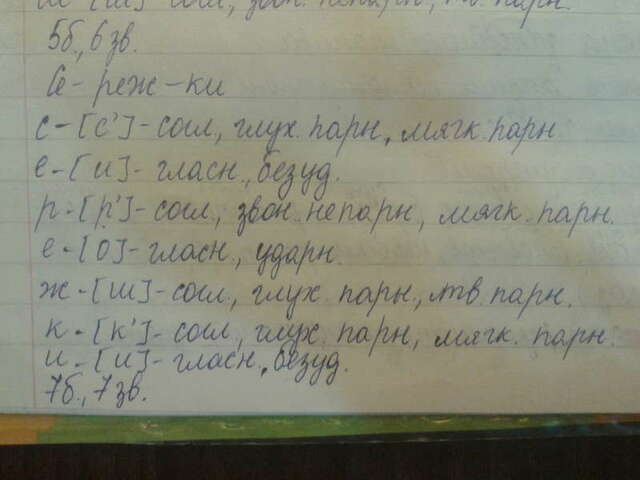 согл, звон. непарн., тв. парн.
5б, 6 зв.
Се - реж - ки
с - [с'] - согл, глух. парн, мягк. парн
е - [и] - гласн., безуд.
р - [р'] - согл, звон. непарн, мягк. парн.
е - [о] - гласн., ударн.
ж - [ш] - согл., глух. парн., тв. парн.
к - [к'] - согл, глух. парн, мягк. парн.
и - [и] - гласн., безуд.
7б., 7 зв.